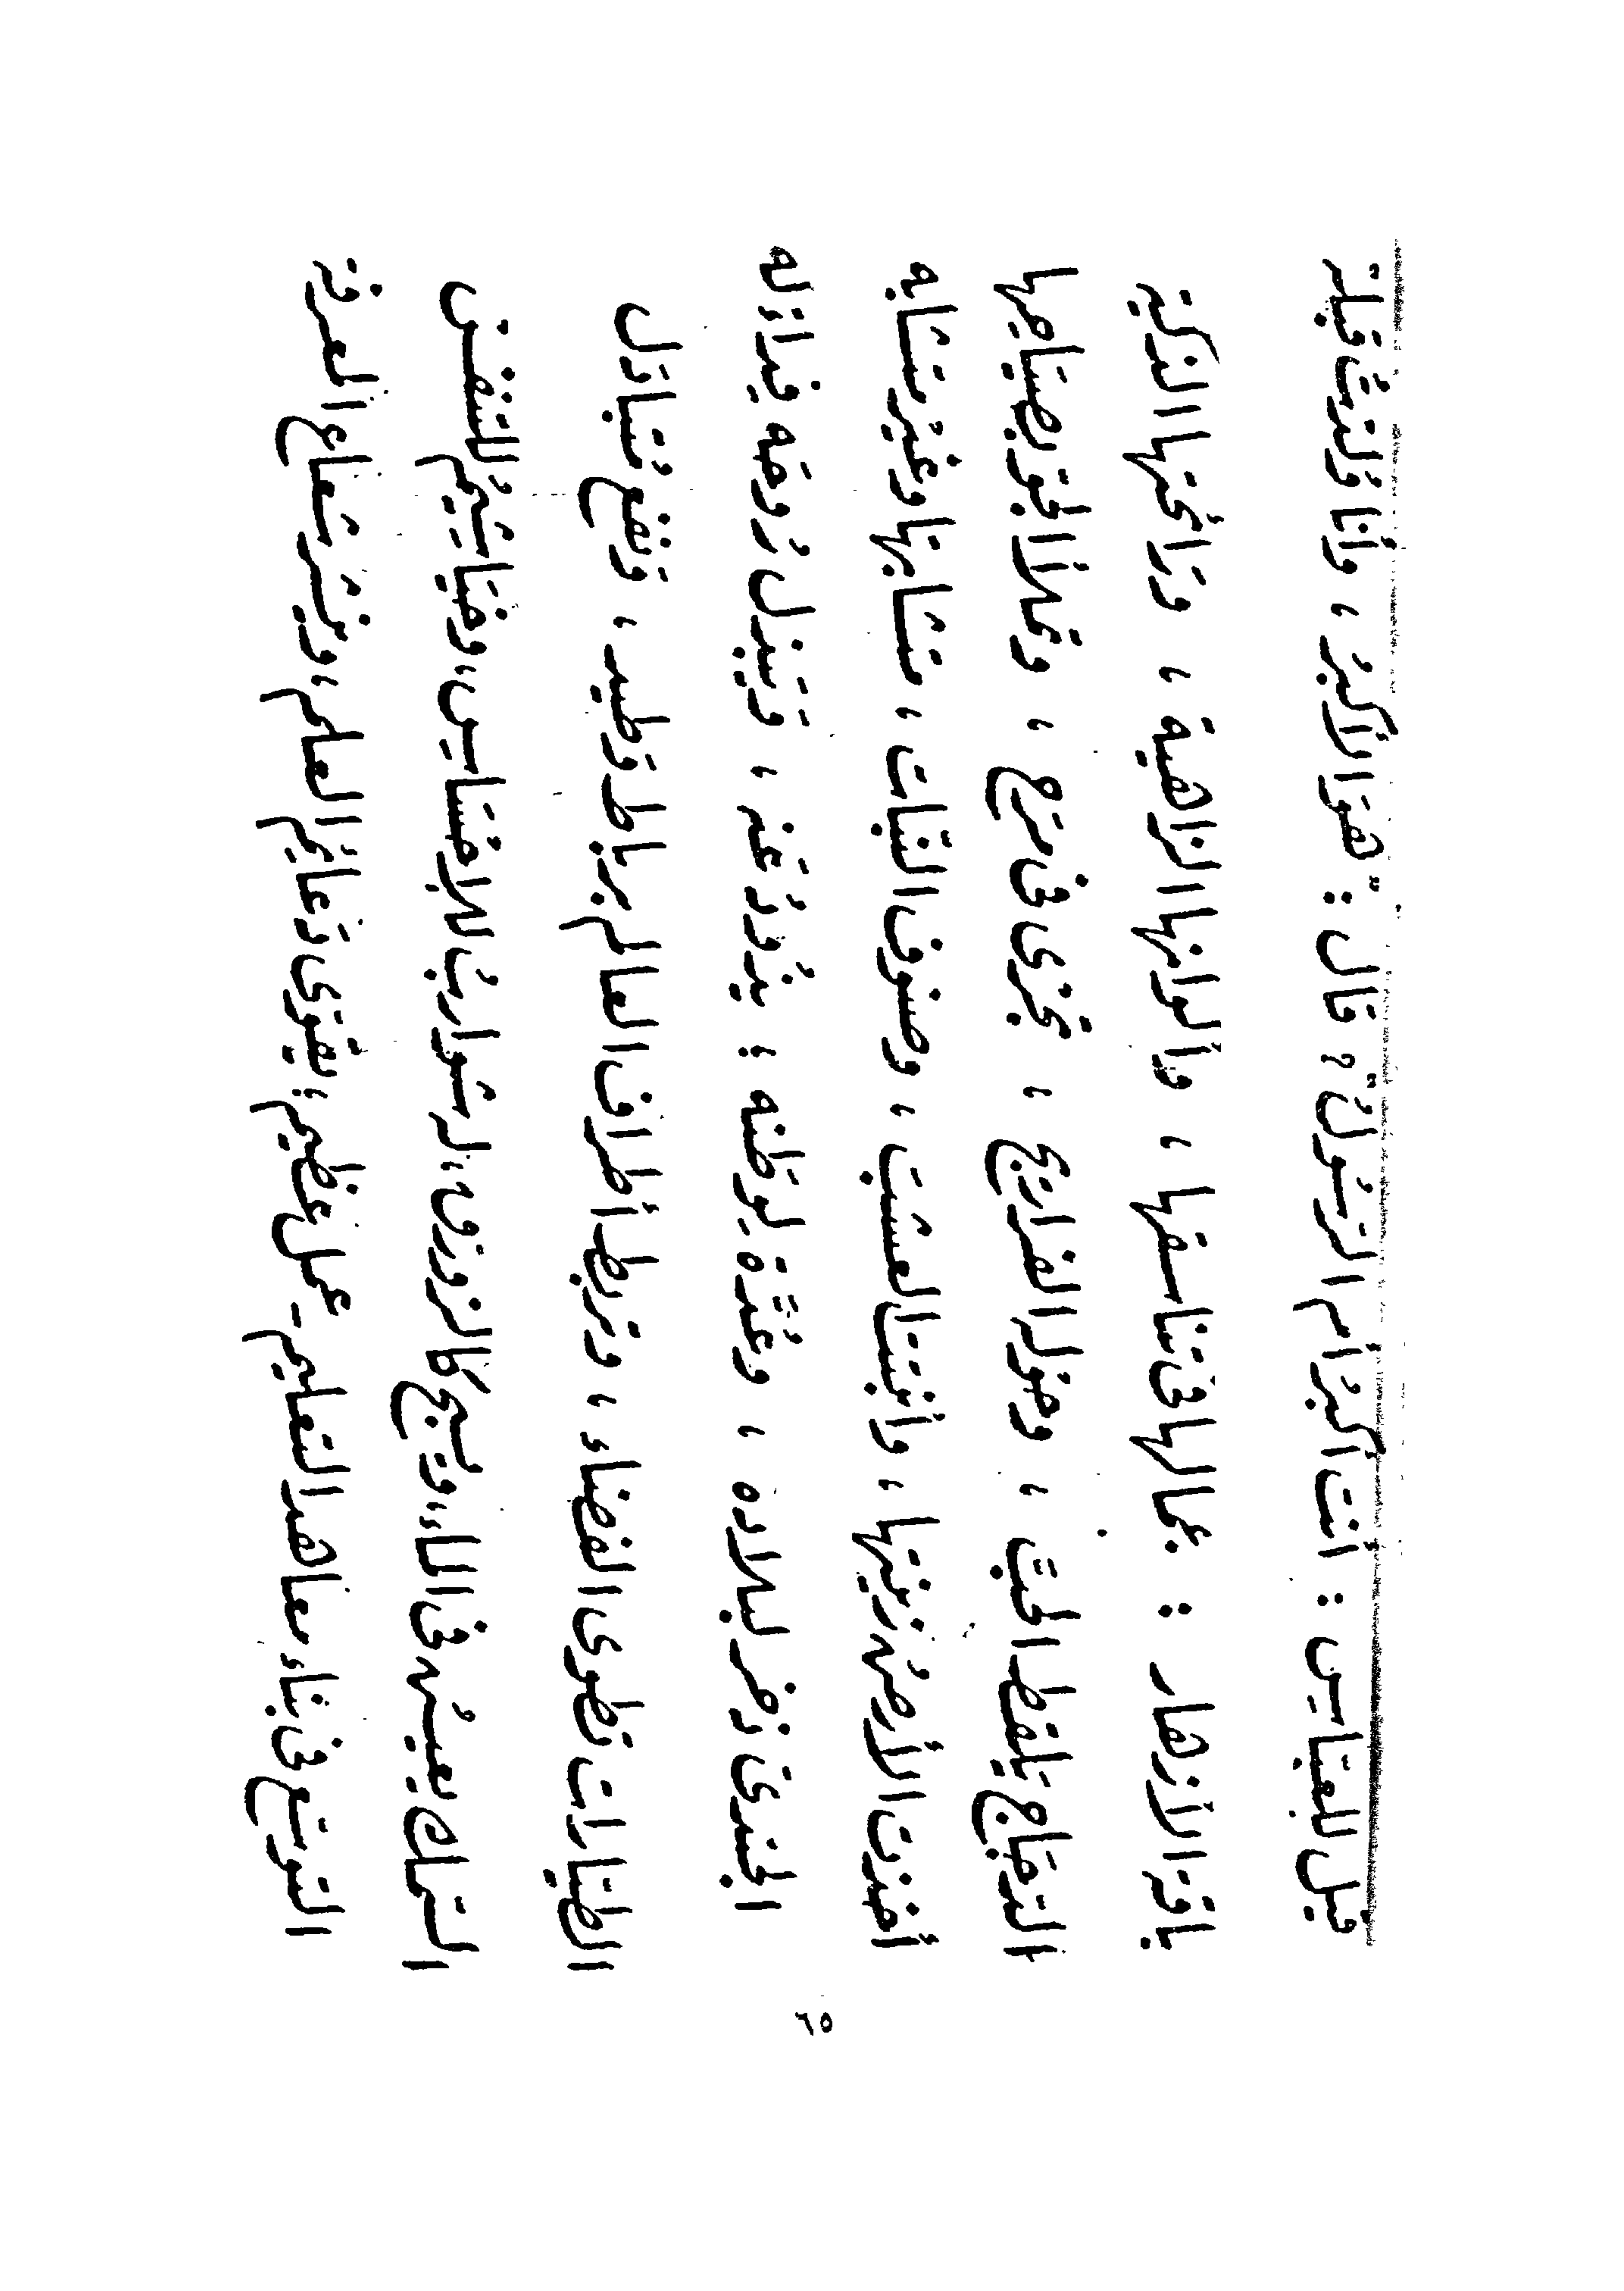 قيل للعبّاس : أنت أكبرُ أم الرّسُولُ ؟ قال : هوَ الأكبرُ ، وأنا وُلدتُ قبلهُ
باقة الأزهار : جمالها في تناسقها ، وألوانها الزاهية ، ورَائحتها الذكية
الدجَاج يَلقط الحَبّ ، وحَوله الفراريج ، تجْرى فى مرَح ، وتملأ الجَوّ بصيَاحِها
أخذت الأرضُ زينتها ، وأنبتَت العشبَ ، وصنوف النّبات ، متشابها وغيْر متشابه
الجندىّ ذخر لبلاده ، وعُدّة لِوَطنه ؛ يذُودُ عَنه ، وَيَبذل رُوحَه فِداءً له
الطيّارات تطوى الفضَاء ، وتربط أطراف العالم برباط وَطيد ، وَنفع مُتبادَل
السّمك يعيشُ فى الماء، ويَسبح كالزورق، له شَواربُ للاحْسَاسِ، وخيَاشيمُ للتنفس
التوسّع فى بنَاء معاهد التعليم ـ عمل عَظيم؛ يُقوّى دَعائِم العلم، وينشر شعاع المعرفة
٦٥